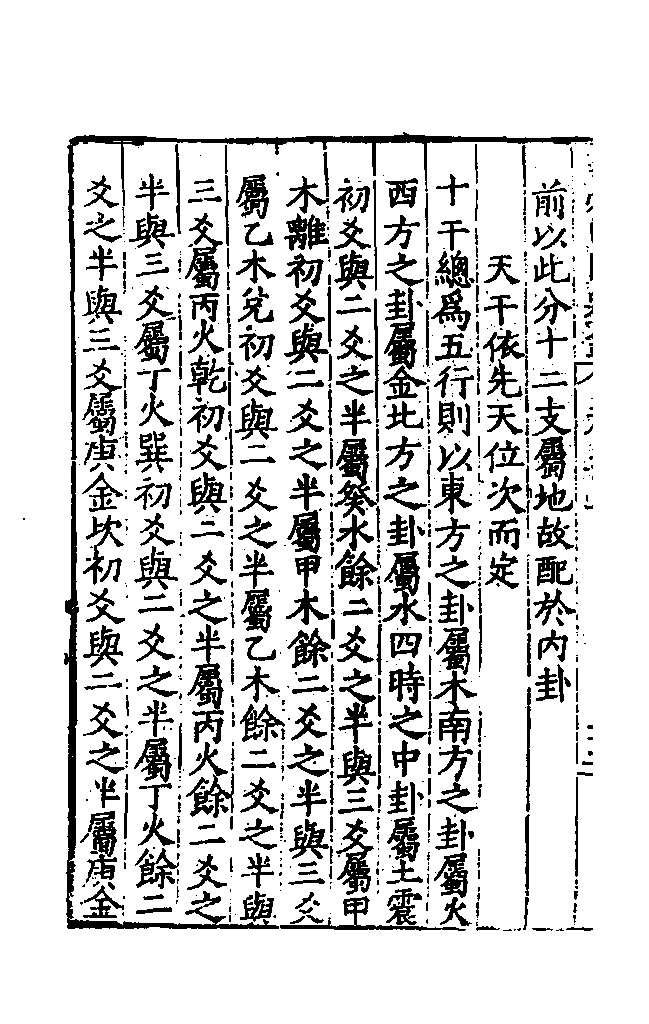 前以此分十二支屬地故配於内卦
天干依先天位次而定
十干總爲五行則以東方之卦屬木南方之卦屬火
西方之卦屬金北方之卦屬水四時之中卦屬土震
初爻與二爻之半屬癸水餘二爻之半與三爻屬甲
木離初爻與二爻之半屬甲木餘二爻之半與三爻
屬乙木兌初爻與二爻之半屬乙木餘二爻之半與
三爻屬丙火乾初爻與二爻之半屬丙火餘二爻之
半與三爻屬丁火巽初爻與二爻之半屬丁火餘二
爻之半與三爻屬庚金坎初爻與二爻之半屬庚金